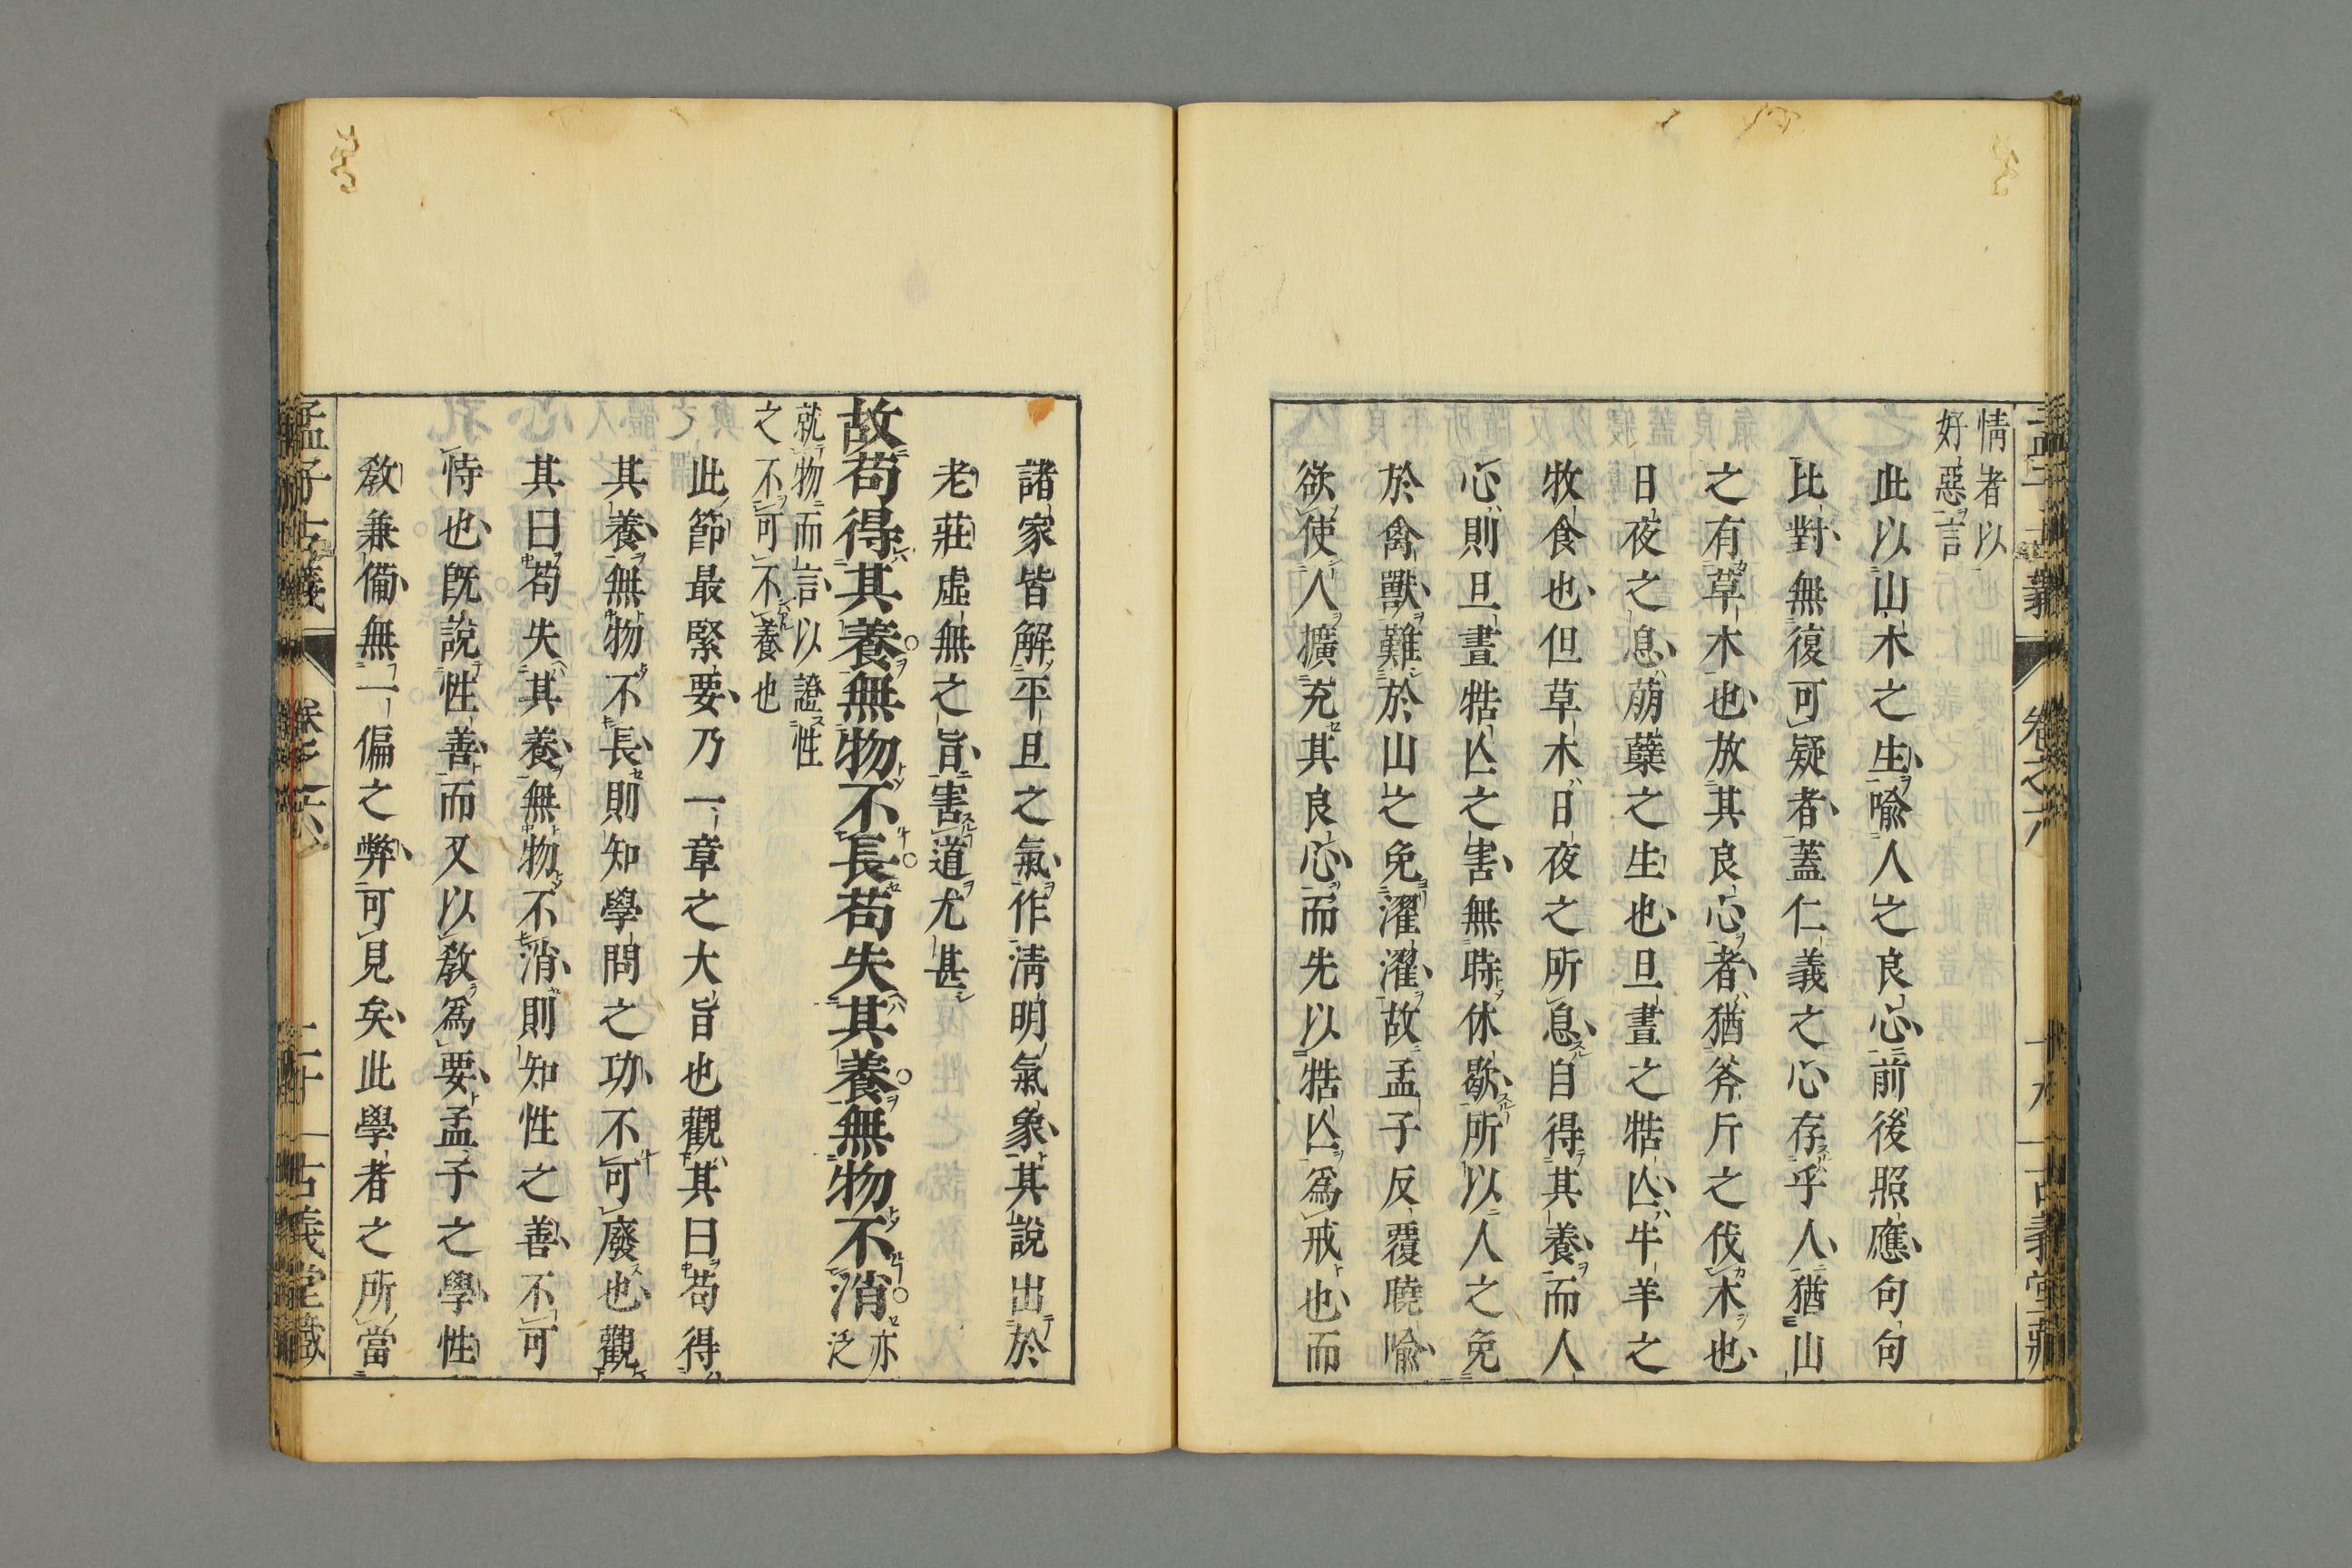 情者以
好惡言
此以山木之生喩人之良心前後照應句句
比對無復可疑者蓋仁義之心存乎人猶山
之有草木也放其良心者猶斧斤之伐木也
日夜之息萠蘖之生也旦晝之牿亾牛羊之
牧食也但草木日夜之所息自得其養而人
心則旦晝牿亾之害無時休歇所以人之免
於禽獸難於山之免濯濯故孟子反覆曉喩
欲使人擴充其良心而先以牿亾爲戒也而
諸家皆解平旦之氣作淸明氣象其說出於
老莊虛無之旨害道尤甚
故苟得其養無物不長苟失其養無物不消
亦
泛
就物而言以證性
之不可不養也
此節最緊要乃一章之大旨也觀其曰苟得
其養無物不長則知學問之功不可廢也觀
其曰苟失其養無物不消則知性之善不可
恃也旣說性善而又以敎爲要孟子之學性
敎兼備無一偏之弊可見矣此學者之所當
孟子古義
古義堂藏